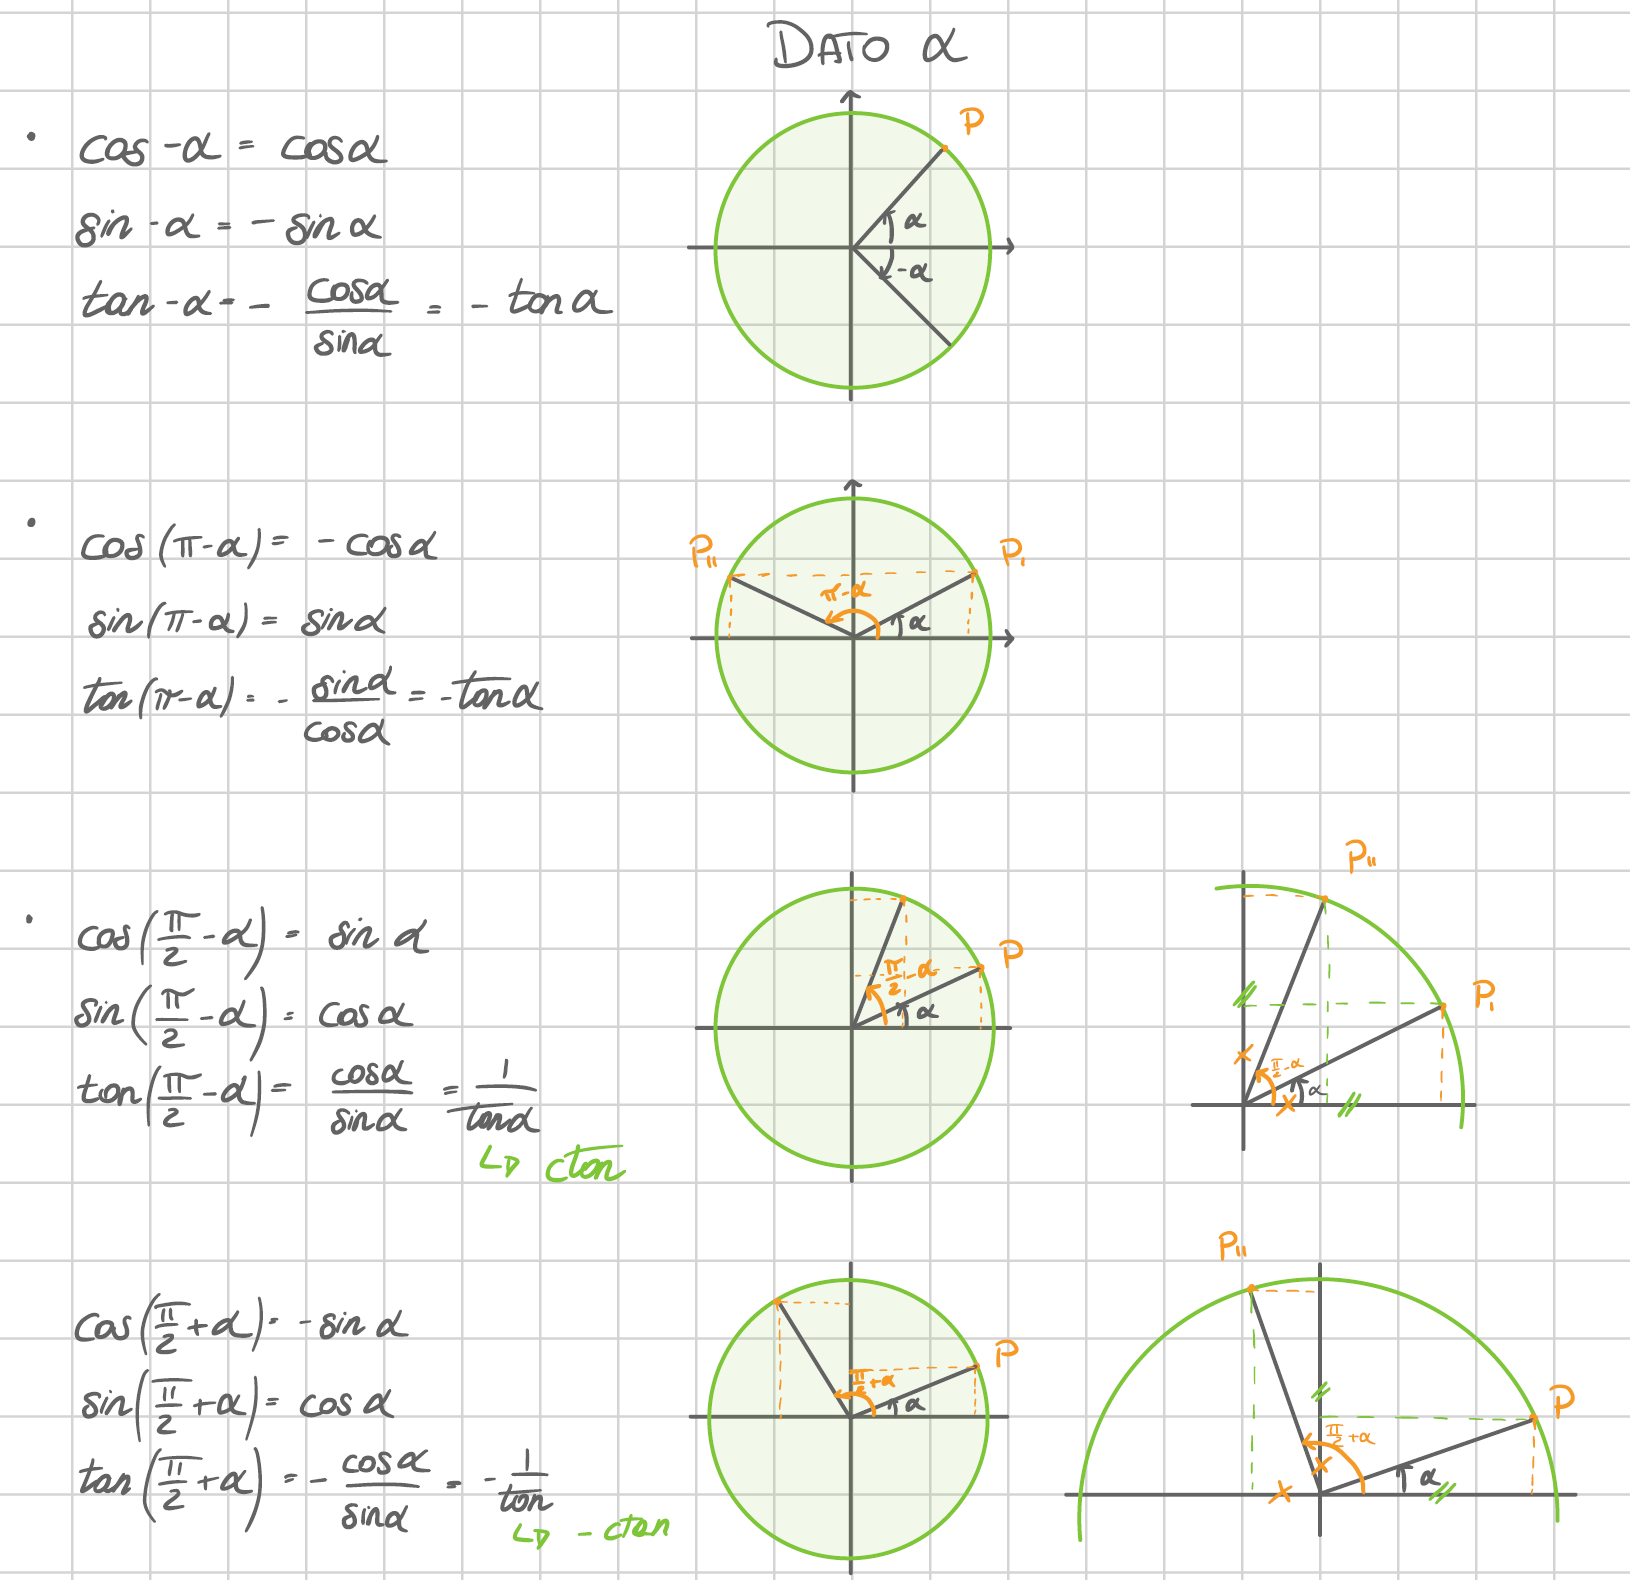 DATO α
• cos -α = cosα
sin -α = - sin α
tan -α = - cosα/sinα = - tan α
P
α
-α
• cos(π-α) = - cosα
sin(π-α) = sinα
tan(π-α) = - sinα/cosα = - tanα
P₁₁
P₁
π-α
α
• cos(π/2 - α) = sin α
sin(π/2 - α) = cosα
tan(π/2 - α) = cosα/sinα = 1/tanα
↳ ctan
P
π/2 - α
α
P₁₁
P₁
π/2 - α
α
cos(π/2 + α) = - sin α
sin(π/2 + α) = cos α
tan(π/2 + α) = - cosα/sinα = - 1/tan
↳ - ctan
P
π/2 + α
α
P₁₁
P
π/2 + α
α